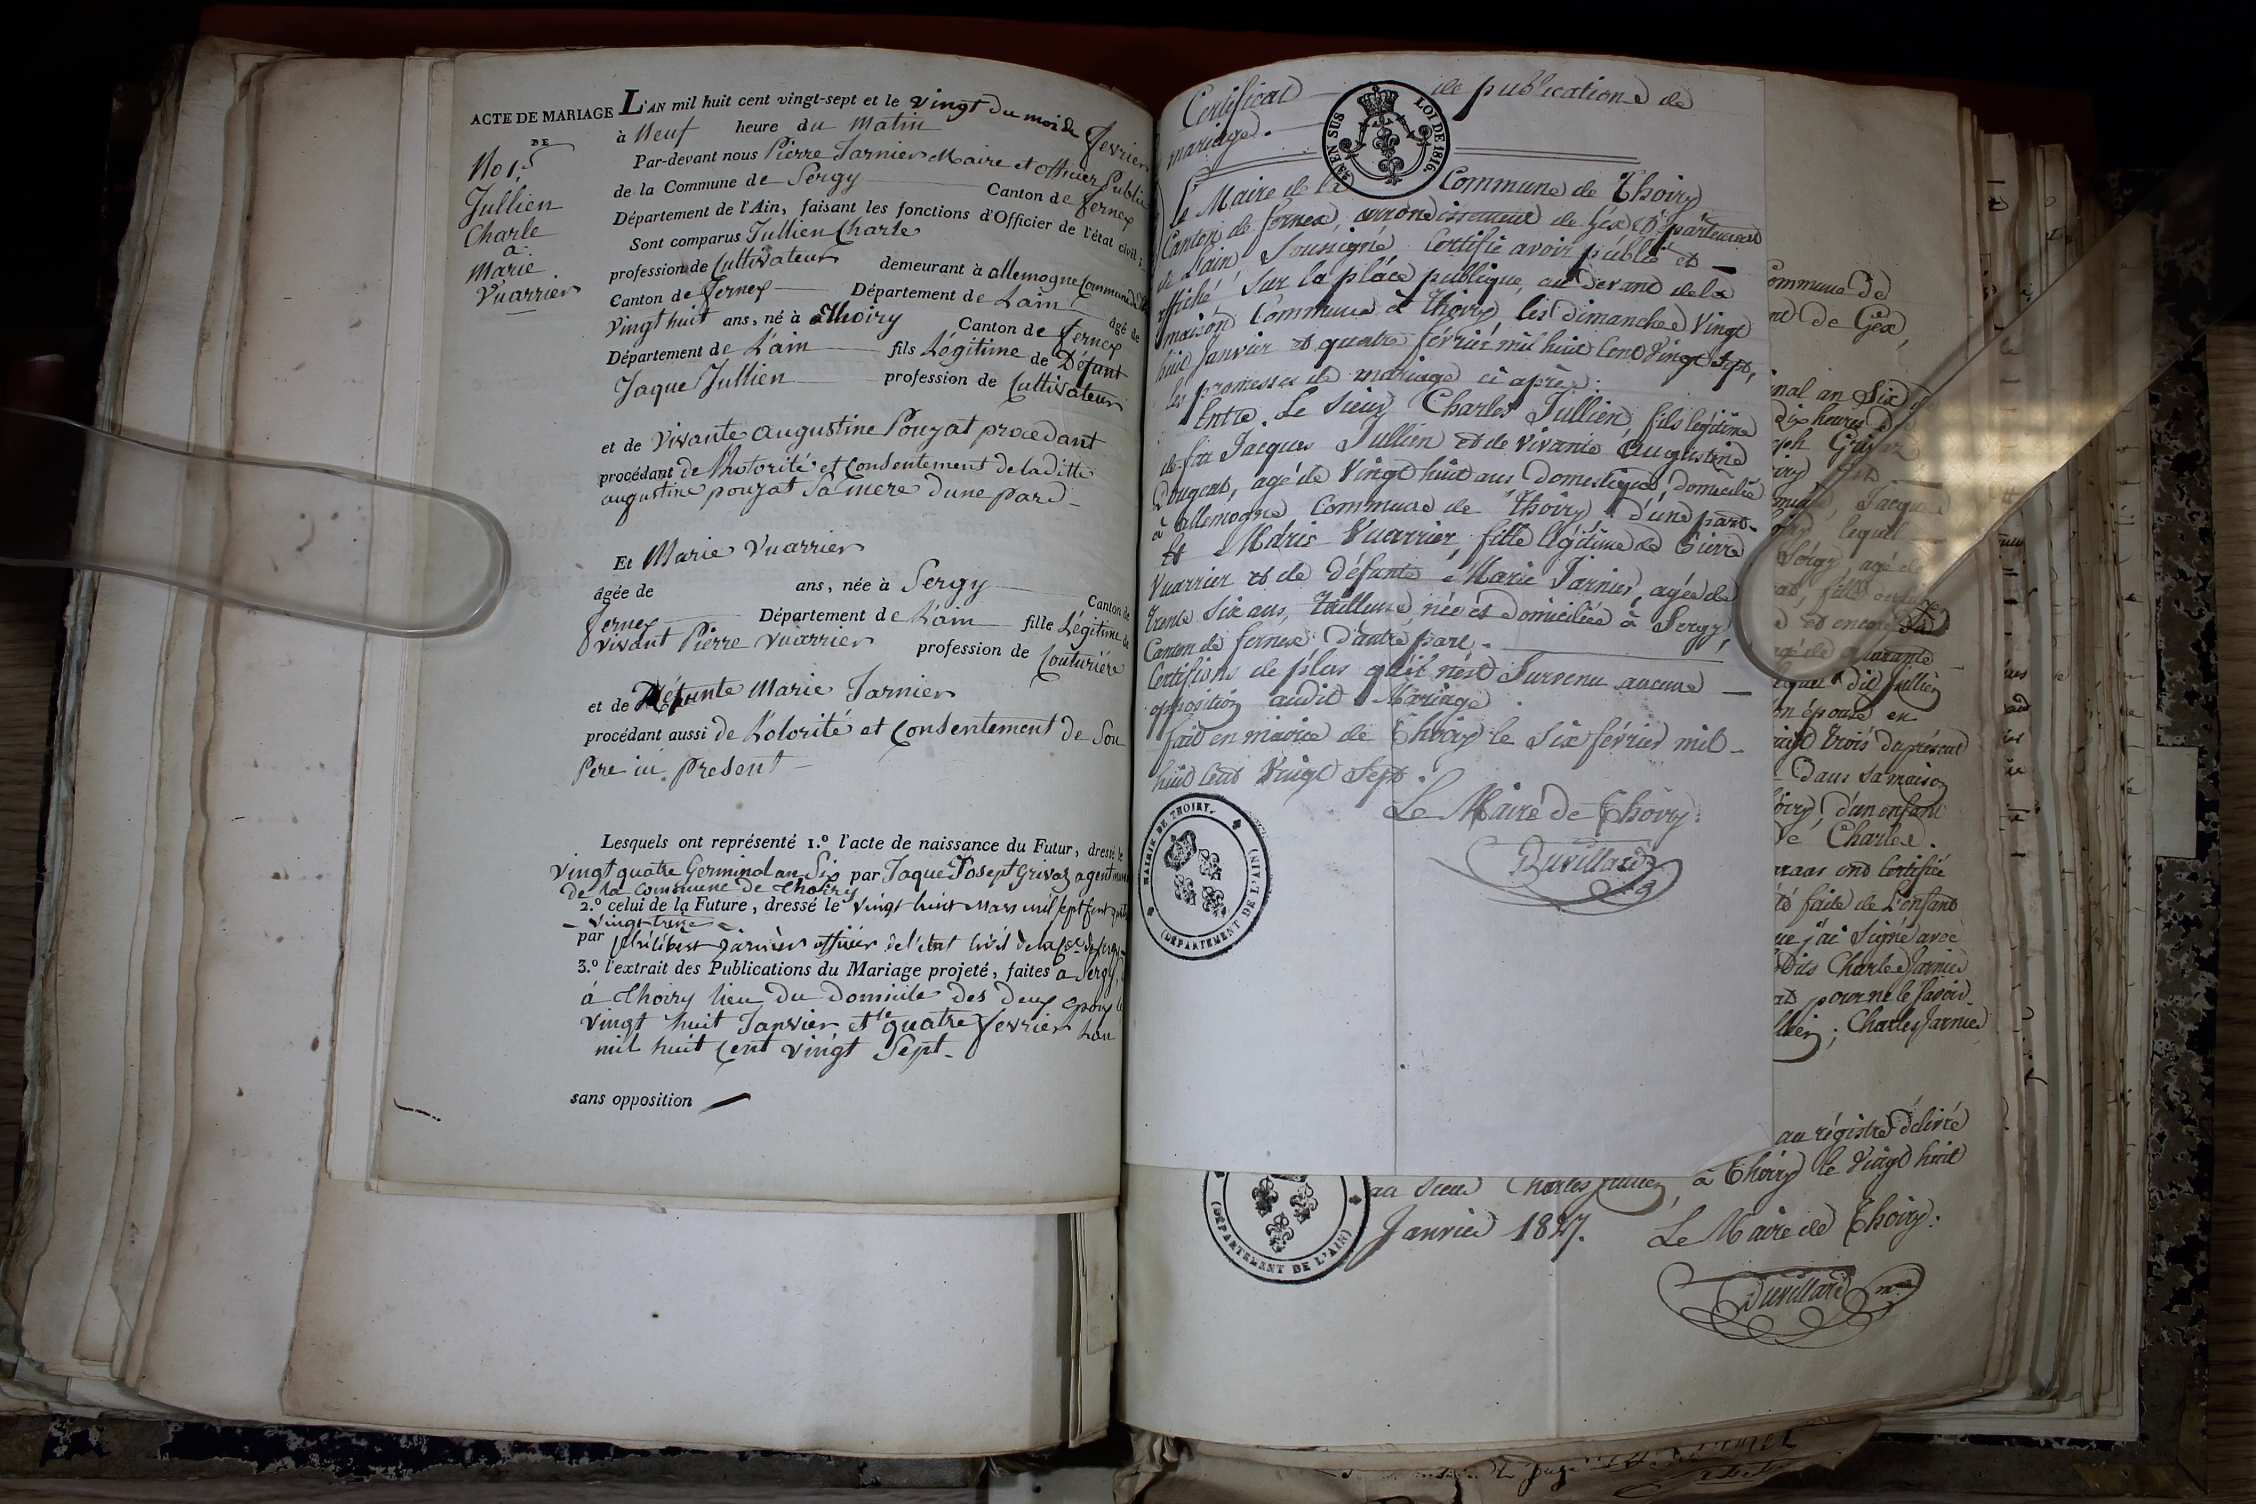 ACTE DE MARIAGE
DE
No 1.
Jullien
Charle
a
Marie
Vuarrier
L'AN mil huit cent vingt-sept et le vingt du mois de fevrier
à Neuf heure du Matin
Par-devant nous Pierre Jarnier Maire et officier Public
de la Commune de Sergy Canton de ferney
Département de l'Ain, faisant les fonctions d'Officier de l'état civil;
Sont comparus Jullien Charle
profession de Cultivateur demeurant à allemogne Commune de
Canton de ferney Département de Lain âgé de
vingt huit ans, né à Thoiry Canton de ferney
Département de L'ain fils Légitime de Défunt
Jaque Jullien profession de Cultivateur
et de vivante augustine Pouzat procedant
procédant de L'hotorité et Consentement de laditte
augustine pouzat Sa mere dune pard
Et Marie Vuarrier
âgée de ans, née à Sergy Canton de
ferney Département de Lain fille Légitime de
vivant Pierre Vuarrier profession de Couturiére
et de Défunte Marie Jarnier
procédant aussi de Lotorité et Consentement de Son
Pere ici present
Lesquels ont représenté 1.º l'acte de naissance du Futur, dressé le
vingt quatre Germinal an Six par Jaque Josept Grivaz agent
de la Commune de Thoiry
2.º celui de la Future, dressé le vingt huit Mars mil sept cent quatre
- vingt treize -
par philibert Jarnier officier de l'état Civil de la Cne de Sergy
3.º l'extrait des Publications du Mariage projeté, faites a Sergy,
á Thoiry lieu du Domicile des deux Epoux le
vingt huit Janvier et le quatre fevrier Lan
mil huit Cent vingt Sept -
sans opposition
Certificat de publications de
mariage.
EN SUS
LOI DE 1816.
Le Maire de la Commune de Thoiry
Canton de fernex, arrondissement de Gex Département
de Lain Soussigné Certifie avoir publié et
affiché Sur la place publique, au devant de la
maison Commune à Thoiry les dimanches Vingt
huit Janvier et quatre février mil huit Cent Vingt Sept,
les promesses de mariage ci après:
Entre. Le Sieur Charles Jullien, fils légitime
de fut Jacques Jullien et de vivante Augustine
Pougeat, agé de Vingt huit ans domestique, domicilié
à allemogne Commune de Thoiry d'une part.
Et Marie Vuarrier, fille légitime de Pierre
Vuarrier et de défunte Marie Jarnier, agée de
trente Six ans, tailleuse, née et domiciliée à Sergy,
Canton de fernex d'autre part.
Certifions de plus qu'il n'est Survenu aucune
opposition audit Mariage
fait en mairie de Thoiry le Six février mil
huit Cent Vingt Sept.
Le Maire de Thoiry:
Duvillard
MAIRIE DE THOIRY.
(DÉPARTEMENT DE L'AIN)
ommune de
nt de Gex,
inal an Six
Dix heures
eph Grivaz
lequel
Sergy, agé de
et encore
agé de quarante
dit Jullien
on épouse en
Vingt trois du présent
Dans sa maison
oiry, d'un enfant
de Charles.
ont Certifié
té faite de L'enfant
que j'ai Signé avec
Dits Charles Jarnier
at pour ne le Savoir
llien; Charles Jarnier
au régistre délivré
au Sieur Charles Jullien, à Thoiry le Vingt huit
Janvier 1827.
Le Maire de Thoiry:
Duvillard
(DÉPARTEMENT DE L'AIN)